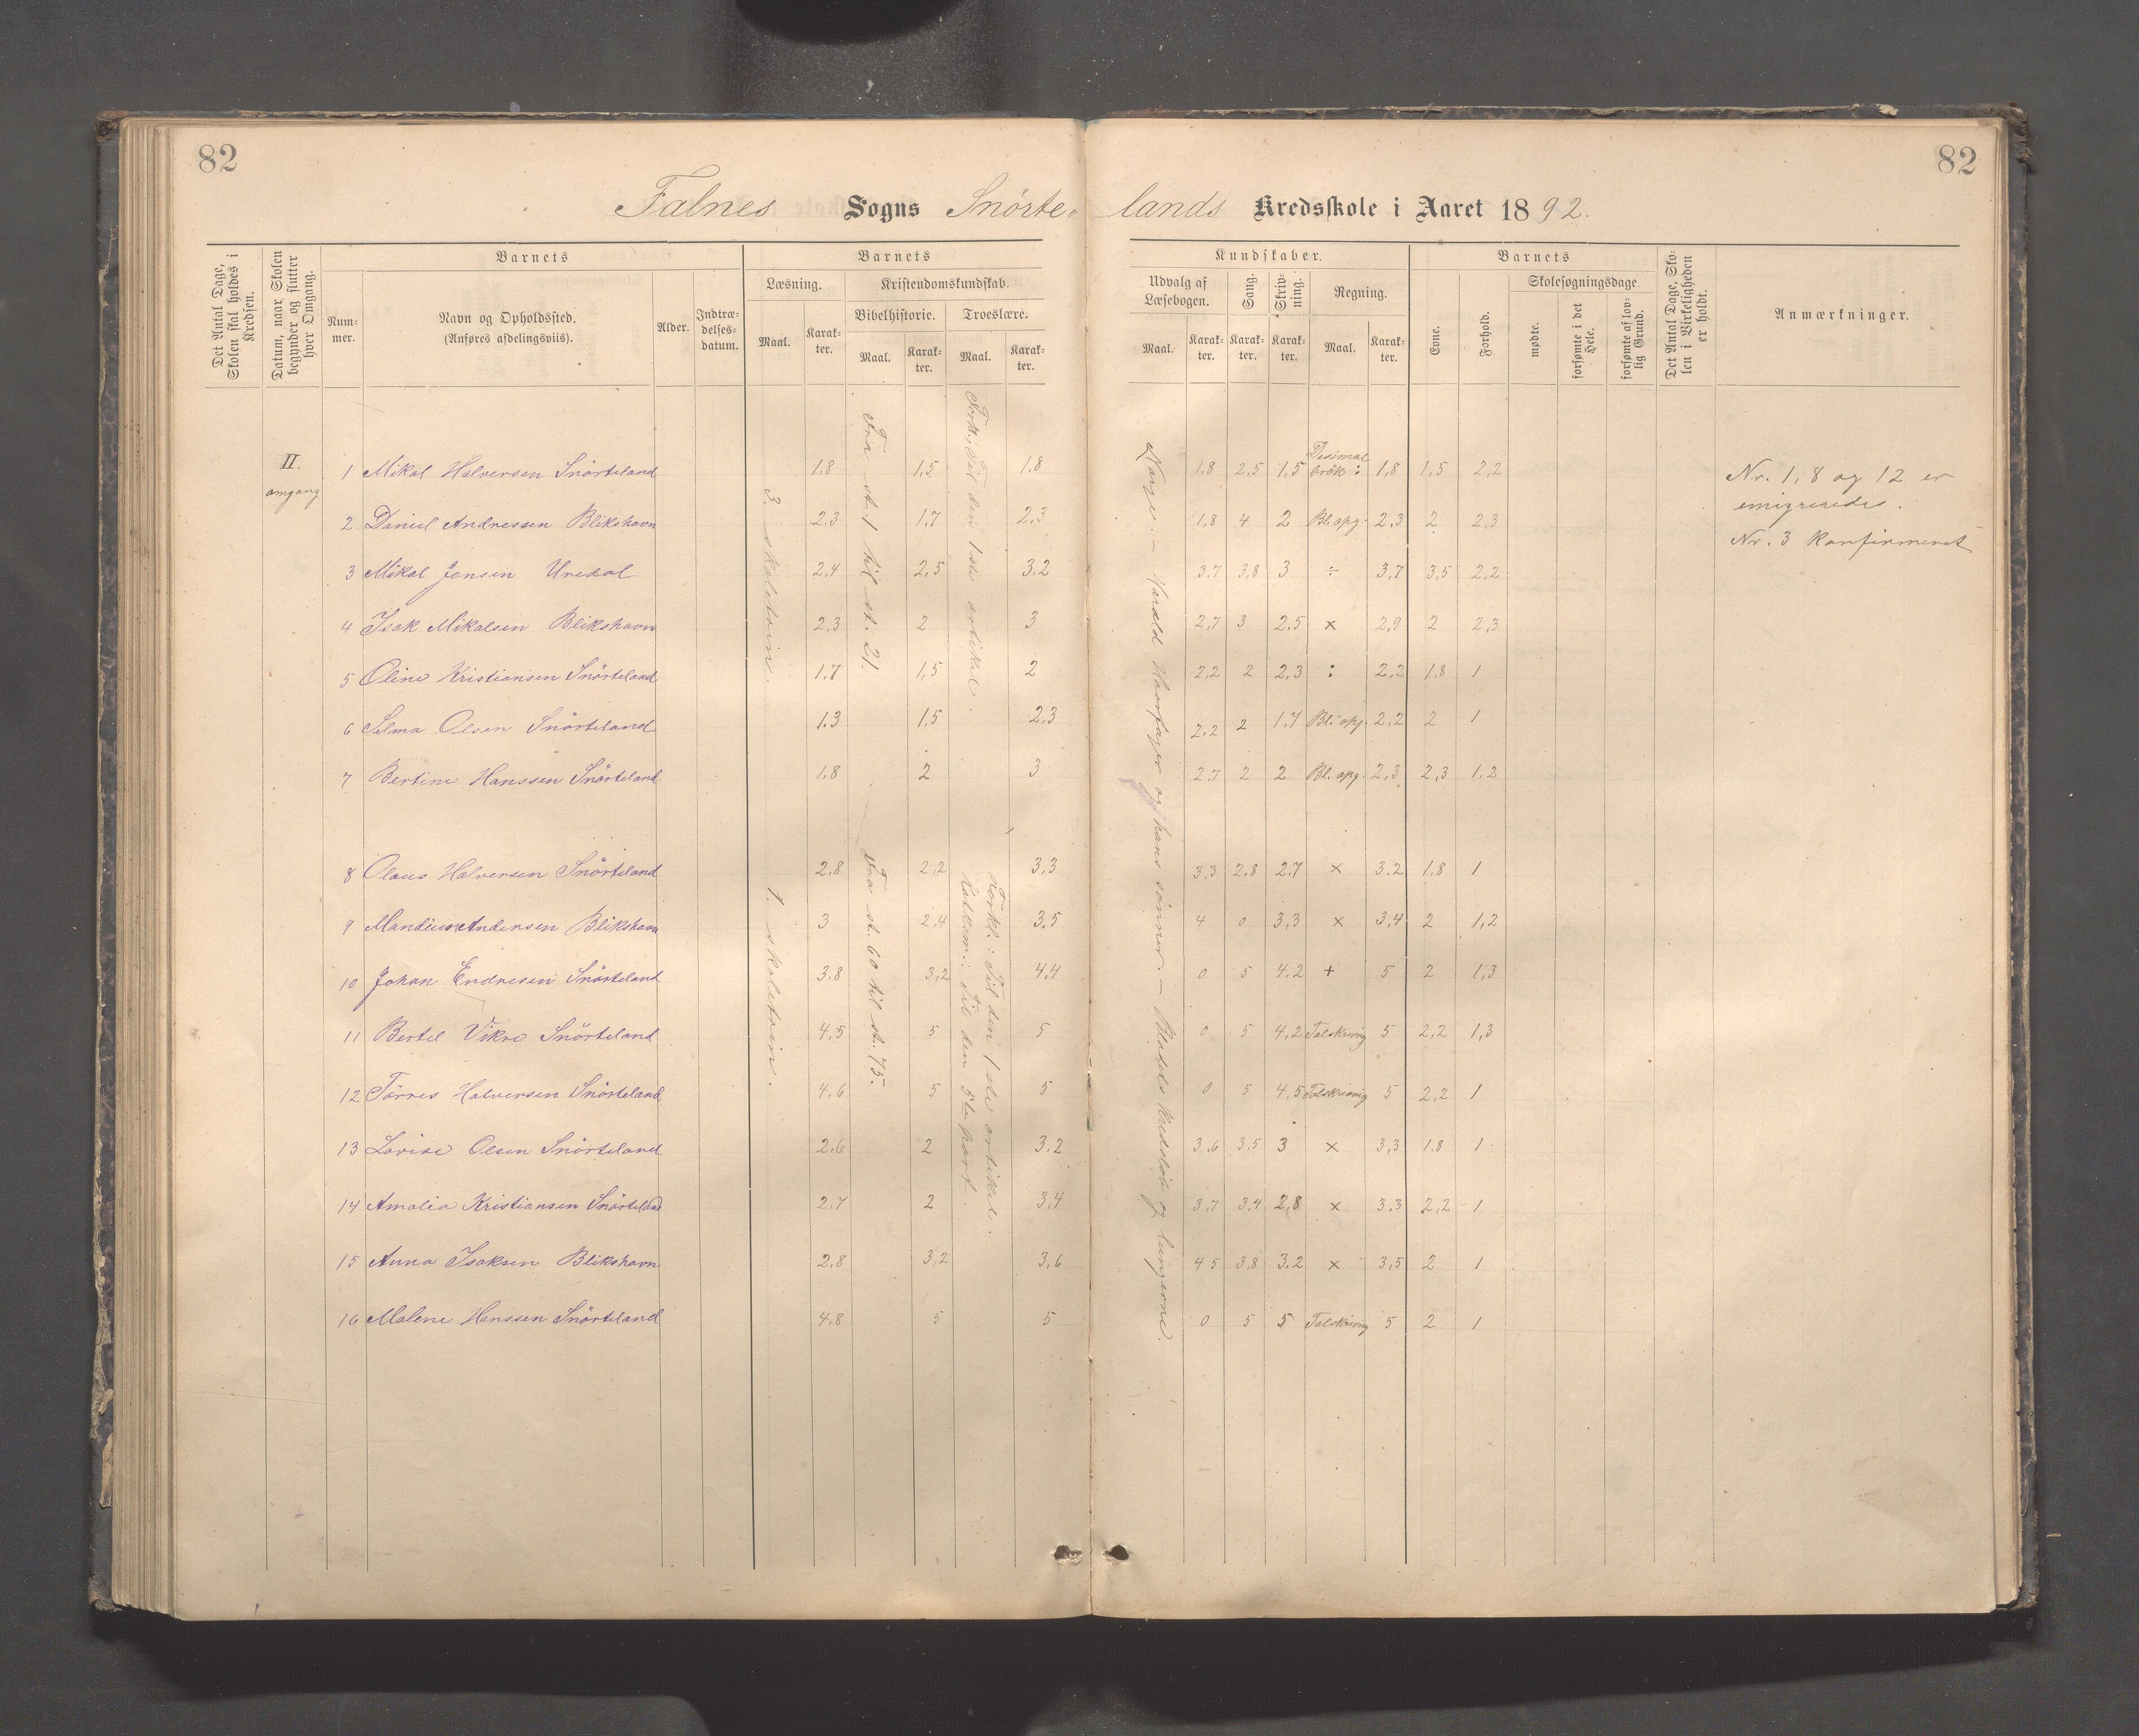 82
82
Falnes Sogns Snörte- lands Kredsskole i Aaret 1892.
Det Antal Dage, Skolen skal holdes i Kredsen.
Datum, naar Skolen begynder og slutter hver Omgang.
Barnets
Num-mer.
Navn og Opholdssted.
(Anføres afdelingsviis).
Alder.
Indtræ-delses-datum.
Barnets
Læsning.
Maal.
Karak-ter.
Kristendomskundskab.
Bibelhistorie.
Maal.
Karak-ter.
Troeslære.
Maal.
Karak-ter.
Kundskaber.
Udvalg af Læsebogen.
Maal.
Karak-ter.
Sang.
Karak-ter.
Skriv-ning.
Karak-ter.
Regning.
Maal.
Karak-ter.
Barnets
Evne.
Forhold.
Skolesøgningsdage
mødte.
forsømte i det Hele.
forsømte af lov-lig Grund.
Det Antal Dage, Sko-len i Virkeligheden er holdt.
Anmærkninger.
II. omgang
3. skoletrin.
Fra st. 1 til st. 21.
Forkl.: Til den 1ste artikel.
Norge. – Harald Haarfager og hans sönner. – Blodets Kredslöb og lungerne.
1 Mikal Halversen Snörteland 1,8 1,5 1,8 1,8 2,5 1,5 Desimal brök : 1,8 1,5 2,2
2 Daniel Andressen Blikshavn 2,3 1,7 2,3 1,8 4 2 Bl. opg. 2,3 2 2,3
3 Mikal Jansen Uredal 2,4 2,5 3.2 3.7 3,8 3 ÷ 3,7 3,5 2,2
4 Isak Mikalsen Blikshavn 2,3 2 3 2,7 3 2.5 × 2,9 2 2,3
5 Oline Kristiansen Snörteland 1.7 1,5 2 2,2 2 2,3 : 2,2 1.8 1
6 Selma Olsen Snörteland 1.3 1,5 2,3 2.2 2 1.7 Bl. opg. 2,2 2 1
7 Bertine Hanssen Snörteland 1,8 2 3 2,7 2 2 Bl. opg. 2,3 2,3 1,2
1. skoletrin.
Fra st. 60 til st. 75.
Forkl.: Til den 1ste artikel.
Katkem.: Til den 5te part.
8 Olaus Halversen Snörteland 2,8 2,2 3,3 3,3 2.8 2.7 × 3.2 1,8 1
9 Mandius Andersen Blikshavn 3 2,4 3,5 4 0 3,3 × 3,4 2 1,2
10 Johan Endresen Snörteland 3.8 3,2 4,4 0 5 4.2 + 5 2 1,3
11 Bertel Vikre Snörteland 4,5 5 5 0 5 4,2 Talskrivnig 5 2,2 1,3
12 Törres Halversen Snörteland 4,6 5 5 0 5 4,5 Talskrivnig 5 2,2 1
13 Lovise Olsen Snörteland 2.6 2 3.2 3.6 3,5 3 × 3,3 1.8 1
14 Amalia Kristiansen Snörteland 2.7 2 3,4 3,7 3,4 2,8 × 3.3 2,2 1
15 Anna Isaksen Blikshavn 2,8 3,2 3,6 4 5 3,8 3.2 × 3,5 2 1
16 Malene Hanssen Snörteland 4.8 5 5 0 5 5 Talskrivnig 5 2 1
Nr. 1, 8 og 12 er
emigrerede.
Nr. 3 konfirmeret